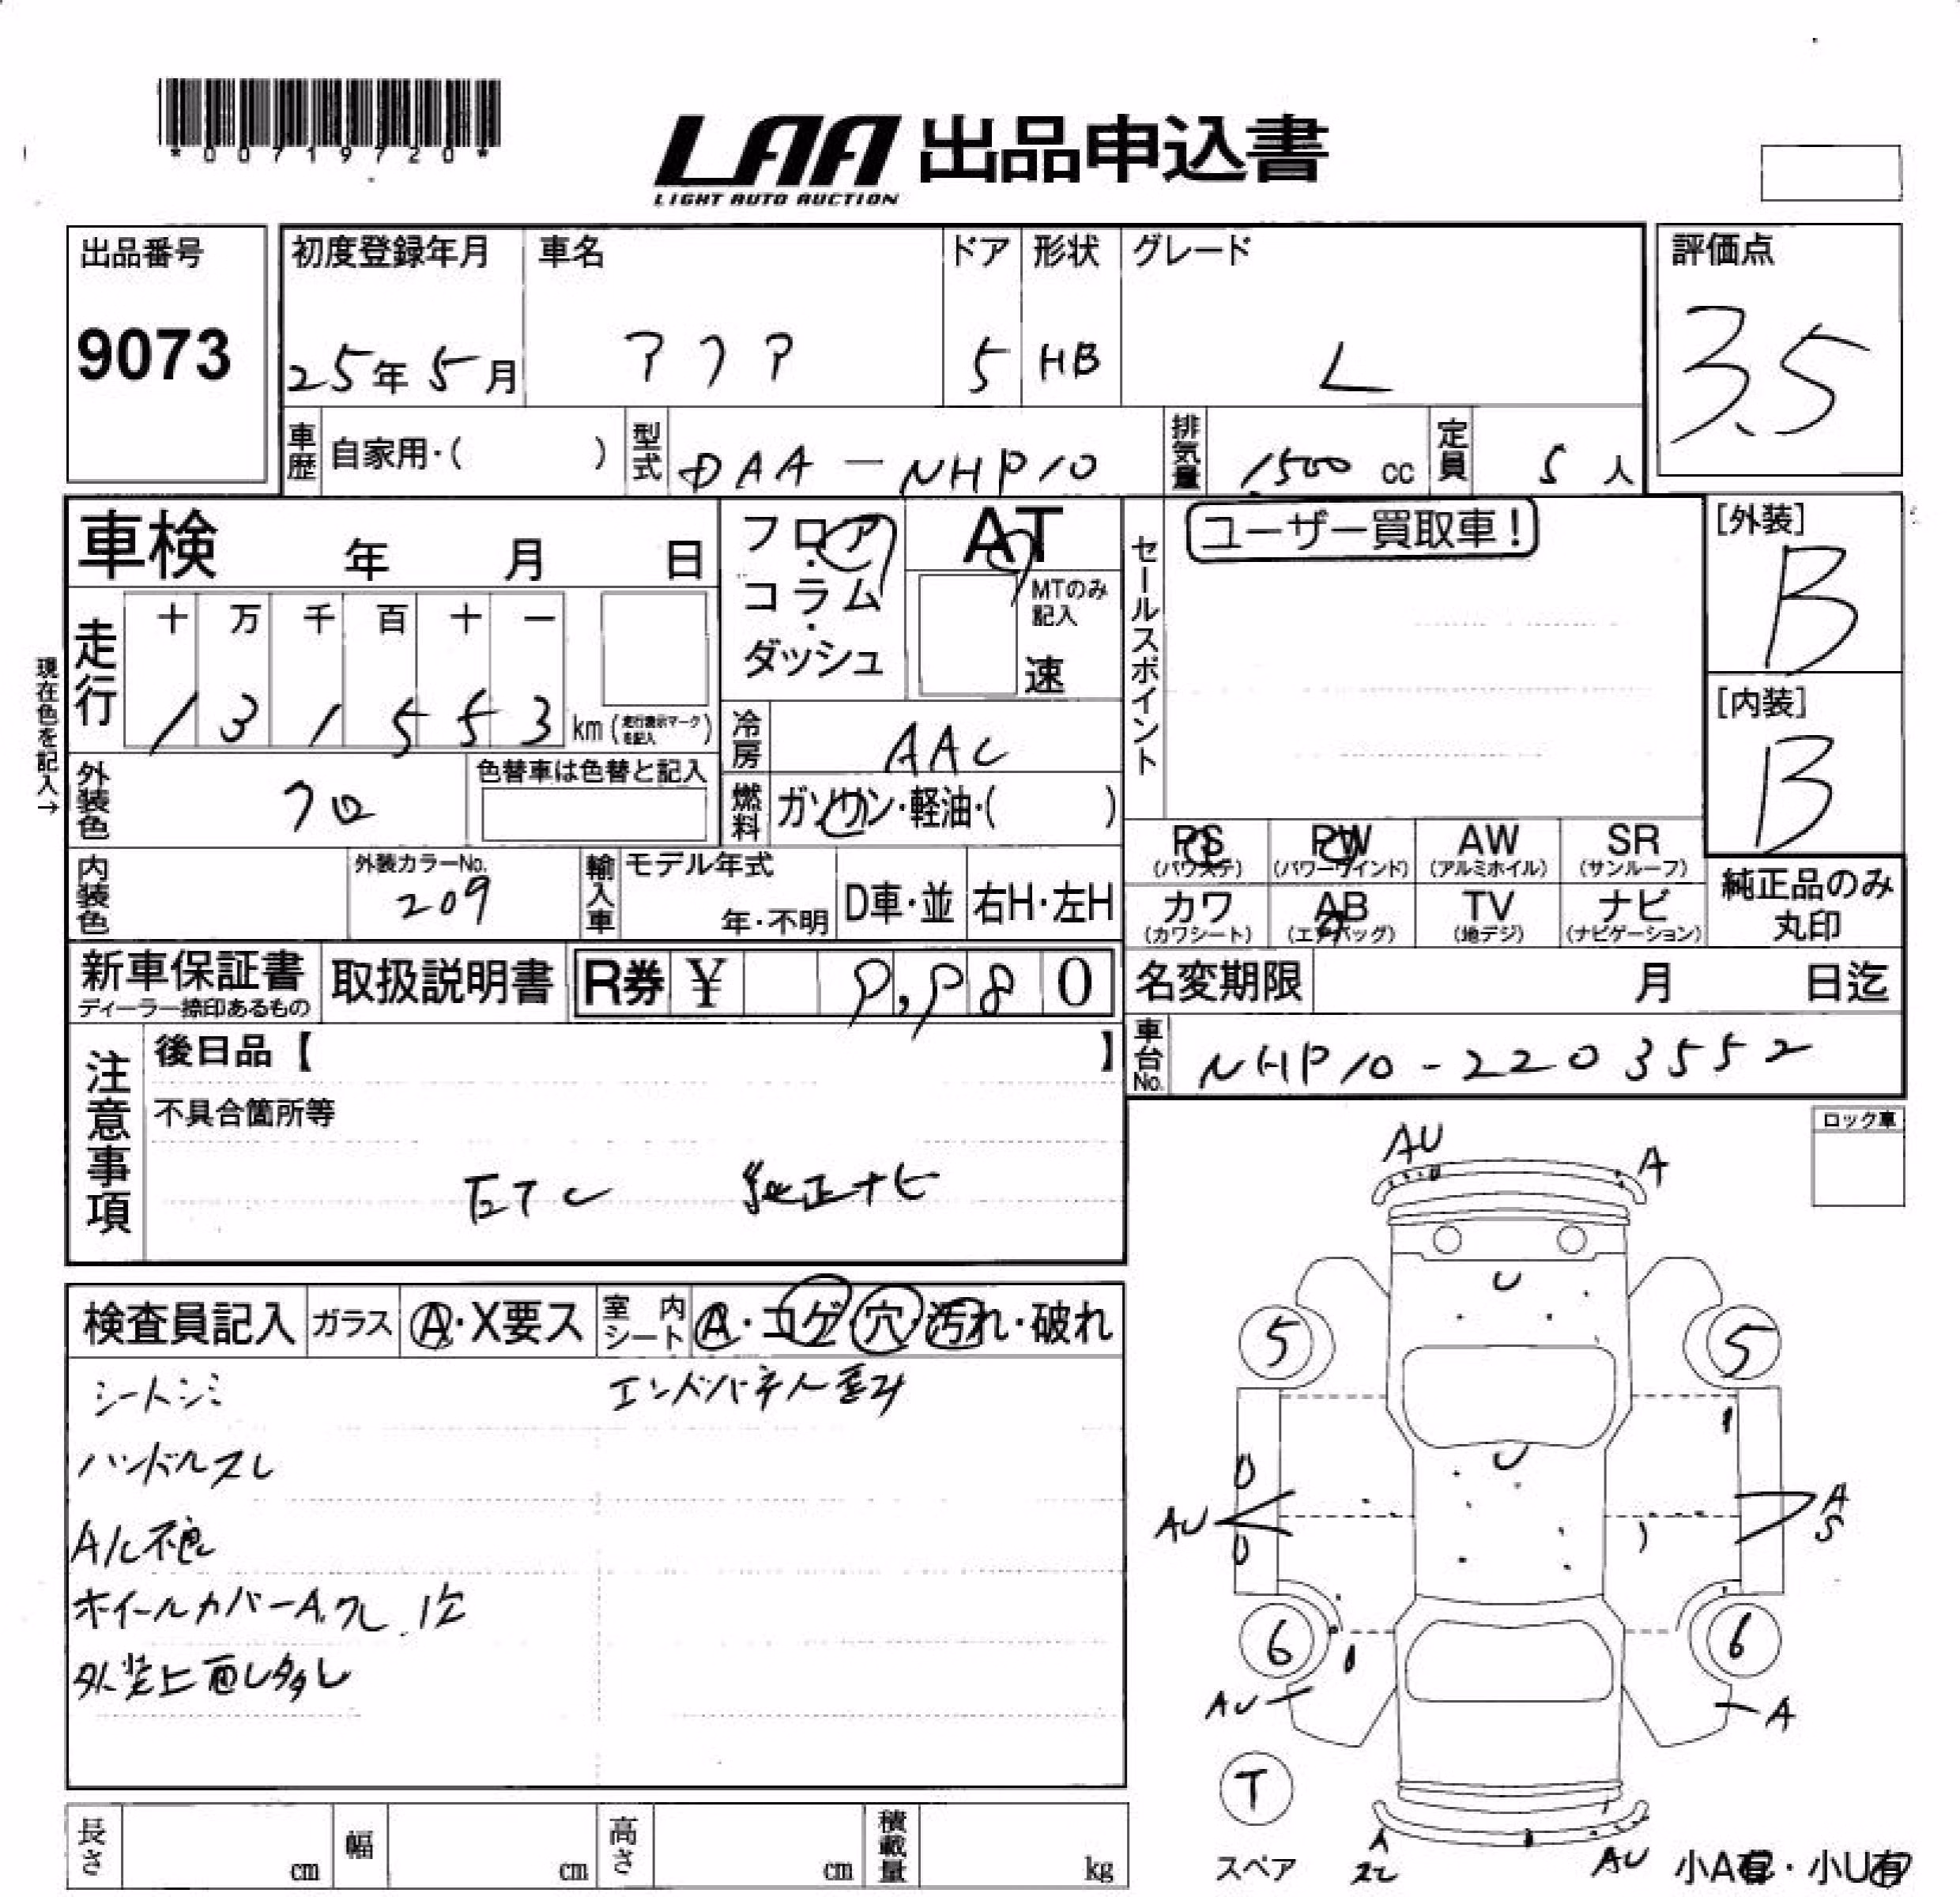 *00719720*
LAA 出品申込書
LIGHT AUTO AUCTION
出品番号
9073
初度登録年月
25年 5月
車名
アクア
ドア
5
形状
HB
グレード
L
評価点
3.5
車歴 自家用・( )
型式 DAA-NHP10
排気量 1500 cc
定員 5 人
車検 年 月 日
現在色を記入→
走行 十 万 千 百 十 一
1 3 1 5 5 3 km (走行表示マークを記入)
フロア・コラム・ダッシュ
AT
MTのみ記入
速
冷房 AAC
燃料 ガソリン・軽油・( )
外装色 クロ
色替車は色替と記入
内装色
外装カラーNo.
209
輸入車 モデル年式
年・不明
D車・並
右H・左H
セールスポイント
ユーザー買取車!
[外装]
B
[内装]
B
PS (パワステ)
PW (パワーウインド)
AW (アルミホイル)
SR (サンルーフ)
カワ (カワシート)
AB (エアバッグ)
TV (地デジ)
ナビ (ナビゲーション)
純正品のみ丸印
新車保証書
ディーラー捺印あるもの
取扱説明書
R券 ¥ 9,980
名変期限 月 日迄
車台No. NHP10-2203552
注意事項
後日品【 】
不具合箇所等
ETC 純正ナビ
ロック車
検査員記入
ガラス A・X要ス
室内シート A・コゲ・穴・汚れ・破れ
シートシミ
エンドパネル歪み
ハンドルスレ
A/C不良
ホイールカバーA.ワレ.1欠
外装上面U多し
AU
A
U
5
5
U
U
AU
U
A
S
6
6
AU
A
T
スペア
A
AU
小A有・小U有
長さ cm
幅 cm
高さ cm
積載量 kg